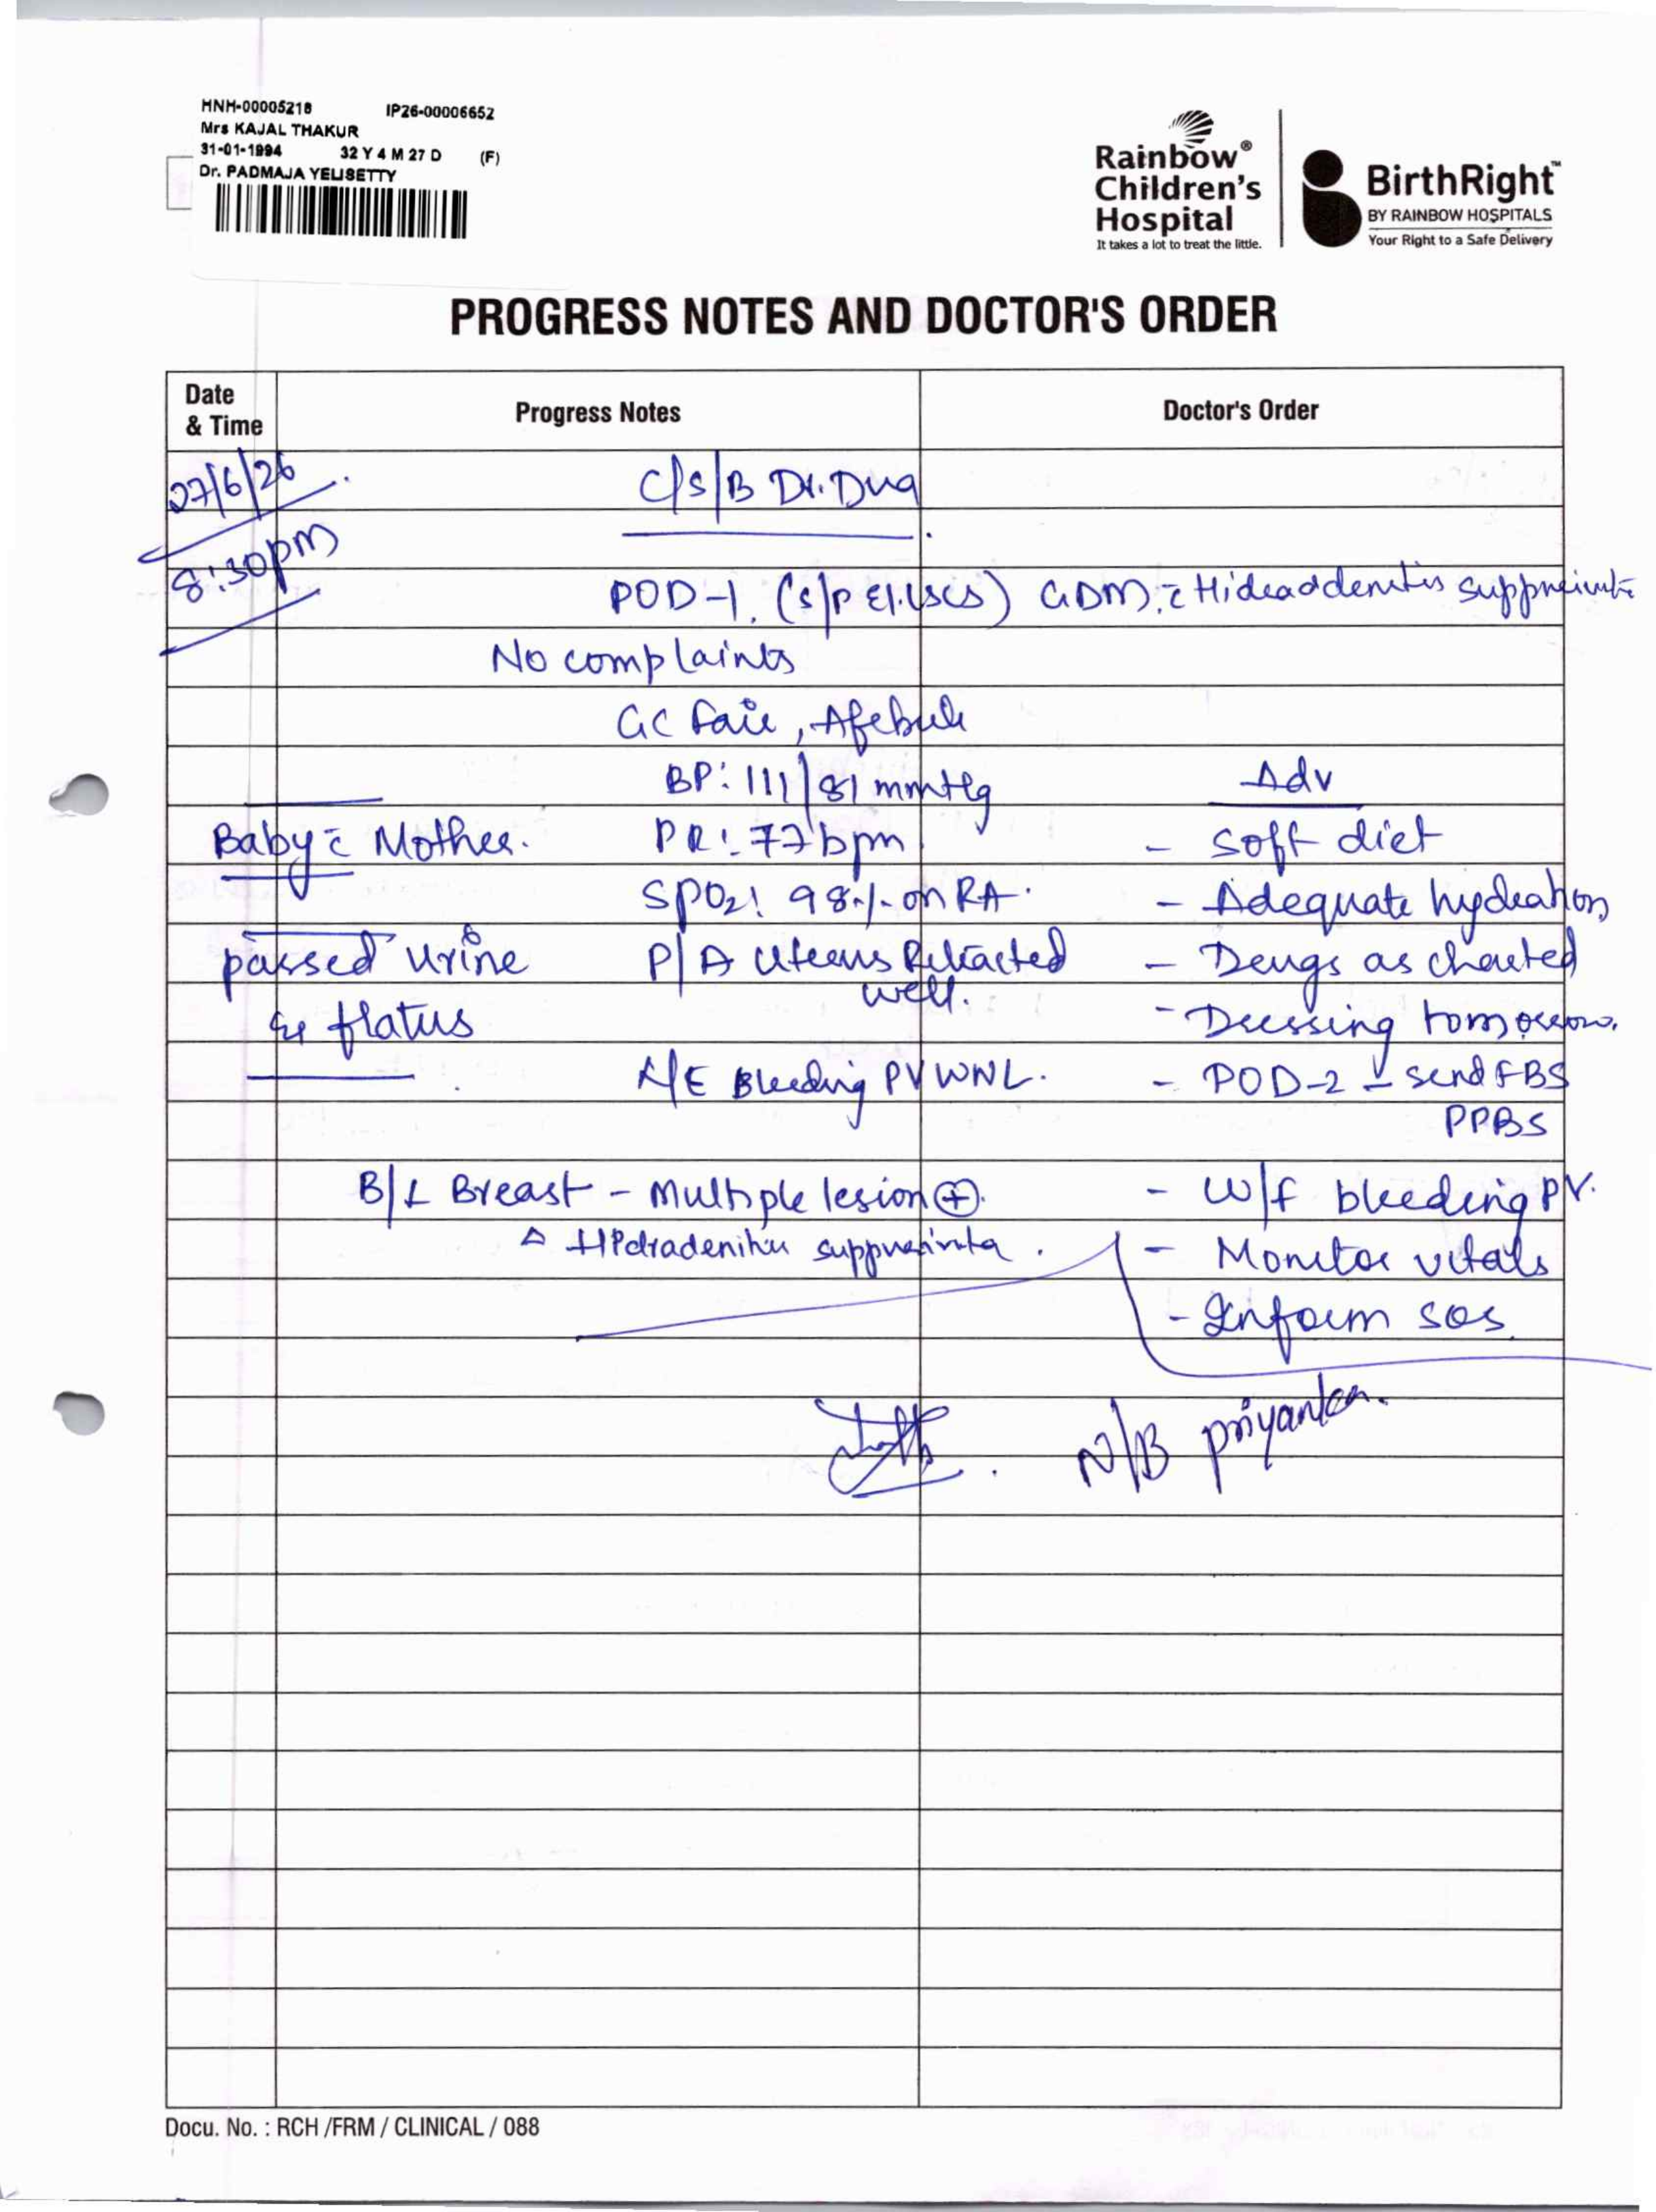 HNH-00005218 IP26-00006652
Mrs KAJAL THAKUR
31-01-1994 32 Y 4 M 27 D (F)
Dr. PADMAJA YELISETTY
Rainbow®
Children's
Hospital
It takes a lot to treat the little.
BirthRight™
BY RAINBOW HOSPITALS
Your Right to a Safe Delivery
PROGRESS NOTES AND DOCTOR'S ORDER
Date & Time Progress Notes Doctor's Order
27/6/26 C/S/B Dr. Dua
8:30pm
POD-1. (s/p El. LSCS) GDM. c̄ Hideaddenitis suppueivate
No complaints
GC Fair, Afebrile
BP: 111/81 mmHg Adv
Baby c̄ Mother. PR: 77 bpm - Soft diet
SPO2: 98% on RA. - Adequate hydration
passed urine P/A Uterus Retracted well. - Drugs as charted
& flatus - Dressing tomorrow.
L/E Bleeding PV WNL. - POD-2 - send FBS
PPBS
B/L Breast - Multiple lesion (+). - W/f bleeding PV.
Δ Hidradenitis suppurativa. - Monitor vitals
- Inform SOS
N/B priyanka.
Docu. No. : RCH /FRM / CLINICAL / 088